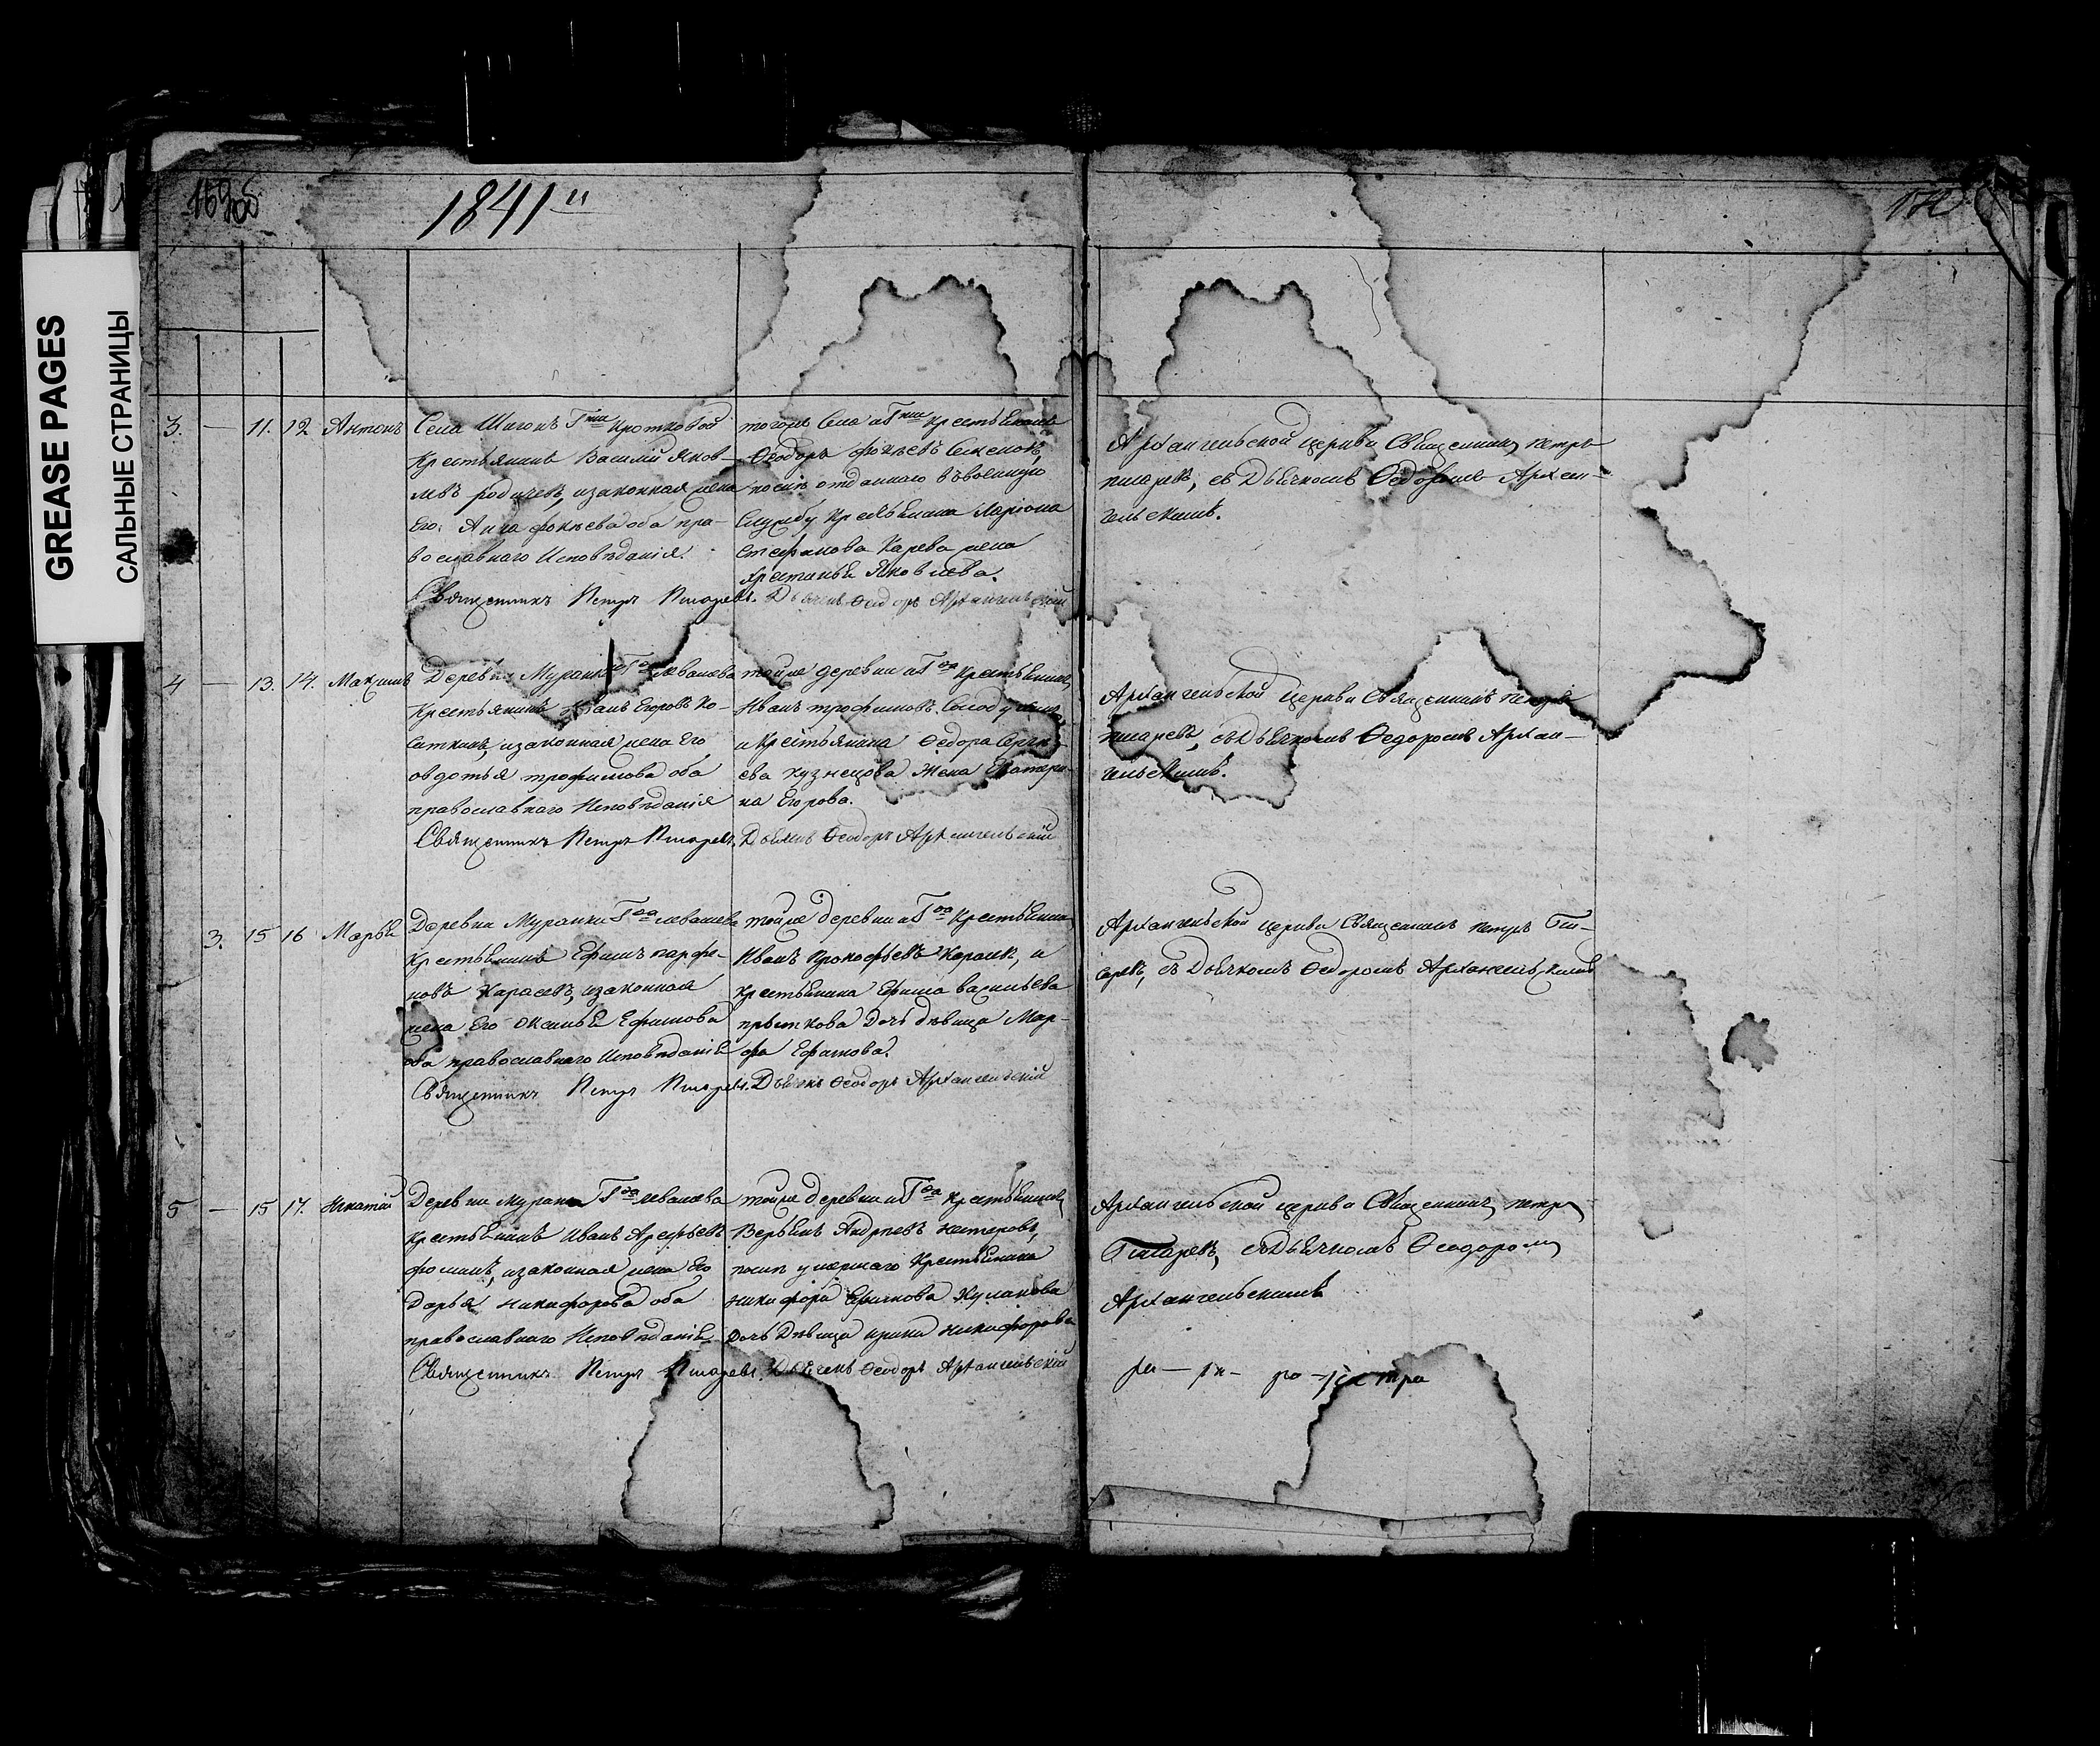 GREASE PAGES
САЛЬНЫЕ СТРАНИЦЫ
1841
3. — 11. 12 Антонъ
Села Шигонъ Гжи Кротковой
крестьянинъ Василий Яков-
левъ родичевъ, изаконная жена
Его Анна фокѣева оба пра-
вославнаго Исповѣданія.
Священникъ Петръ Писаревъ.
тогоже Села иГжи крестьянинъ
Ѳеодоръ фокѣевъ
послѣ отданнаго въвоенную
Службу крестьянина Ларіона
стефанова Карева жена
Христинья Яковлева.
Дьячекъ Ѳеодоръ Архангельскій
Архангельской церкви Священникъ петръ
писаревъ, съ Дьячкомъ Ѳедоромъ Архан-
гельскимъ.
4 — 13. 14. Максимъ
Деревни Муранки Гдна левашева
Крестьянинъ Иванъ Егоровъ Ко-
саткинъ, изаконная жена Его
овдотья трофимова оба
православнаго Исповѣданія
Священникъ Петръ Писаревъ.
тойже деревни иГдна крестьянинъ
Иванъ трофимовъ
икрестьянина Ѳедора Сергѣ-
ева кузнецова Жена Екатери-
на Егорова.
Дьячекъ Ѳеодоръ Архангельскій
Архангельской Церкви Священникъ петръ
писаревъ, съДьячкомъ Ѳедоромъ Архан-
гельскимъ.
3. 15 16 Марья
Деревни Муранки Гдна левашева
крестьянинъ Ефимъ парфе-
новъ Карасевъ, изаконная
жена Его Оксинья Ефимова
оба православнаго Исповѣданія
Священникъ Петръ Писаревъ.
тойже деревни иГдна Крестьянинъ
Иванъ Прокофьевъ и
крестьянина Ефима васильева
Дочь дѣвица Мар-
фа Ефимова.
Дьячекъ Ѳеодоръ Архангельскій
Архангельской Церкви Священникъ петръ Пи-
саревъ, съ Дьячкомъ Ѳедоромъ Архангельскимъ
5 — 15 17. Игнатій
Деревни муранки Гдна левашева
крестьянинъ Иванъ Арефьевъ
фоминъ, изаконная жена Его
Дарья никифорова оба
православнаго Исповѣданія
Священникъ Петръ Писаревъ.
тойже деревни иГдна крестьянинъ
Андреевъ нестеровъ,
послѣ умершаго Крестьянина
никифора Кулакова
дочь Дѣвица ирина никифорова
Дьячекъ Ѳеодоръ Архангельскій
Архангельской церкви Священникъ петръ
Писаревъ, съДьячкомъ Ѳеодоромъ
Архангельскимъ